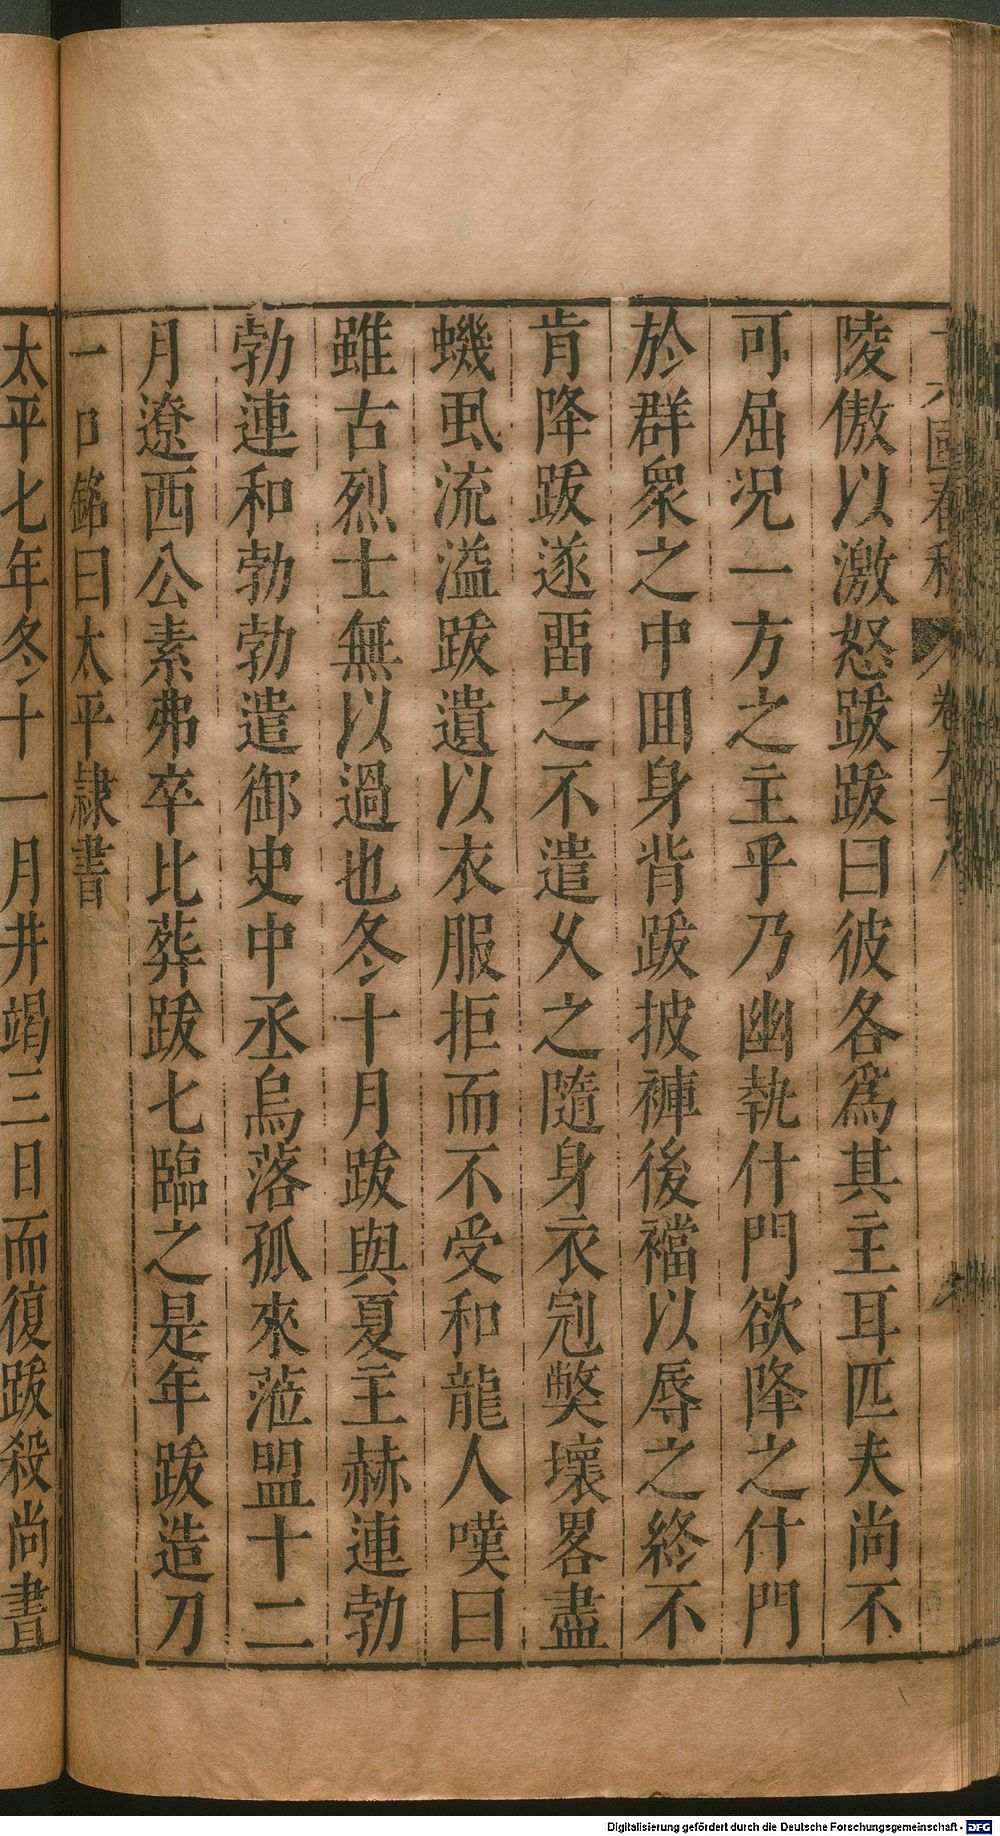 國春秋 卷九十八
陵傲以激怒跋跋曰彼各爲其主耳匹夫尚不
可屈况一方之主乎乃幽執什門欲降之什門
於群衆之中回身背跋披褲後襠以辱之終不
肯降跋遂畱之不遣久之隨身衣冠獘壞畧盡
蟣虱流溢跋遺以衣服拒而不受和龍人嘆曰
雖古烈士無以過也冬十月跋與夏主赫連勃
勃連和勃勃遣御史中丞烏落孤來蒞盟十二
月遼西公素弗卒比葬跋七臨之是年跋造刀
一口銘曰太平隷書
太平七年冬十一月井竭三日而復跋殺尚書
Digitalisierung gefördert durch die Deutsche Forschungsgemeinschaft - DFG